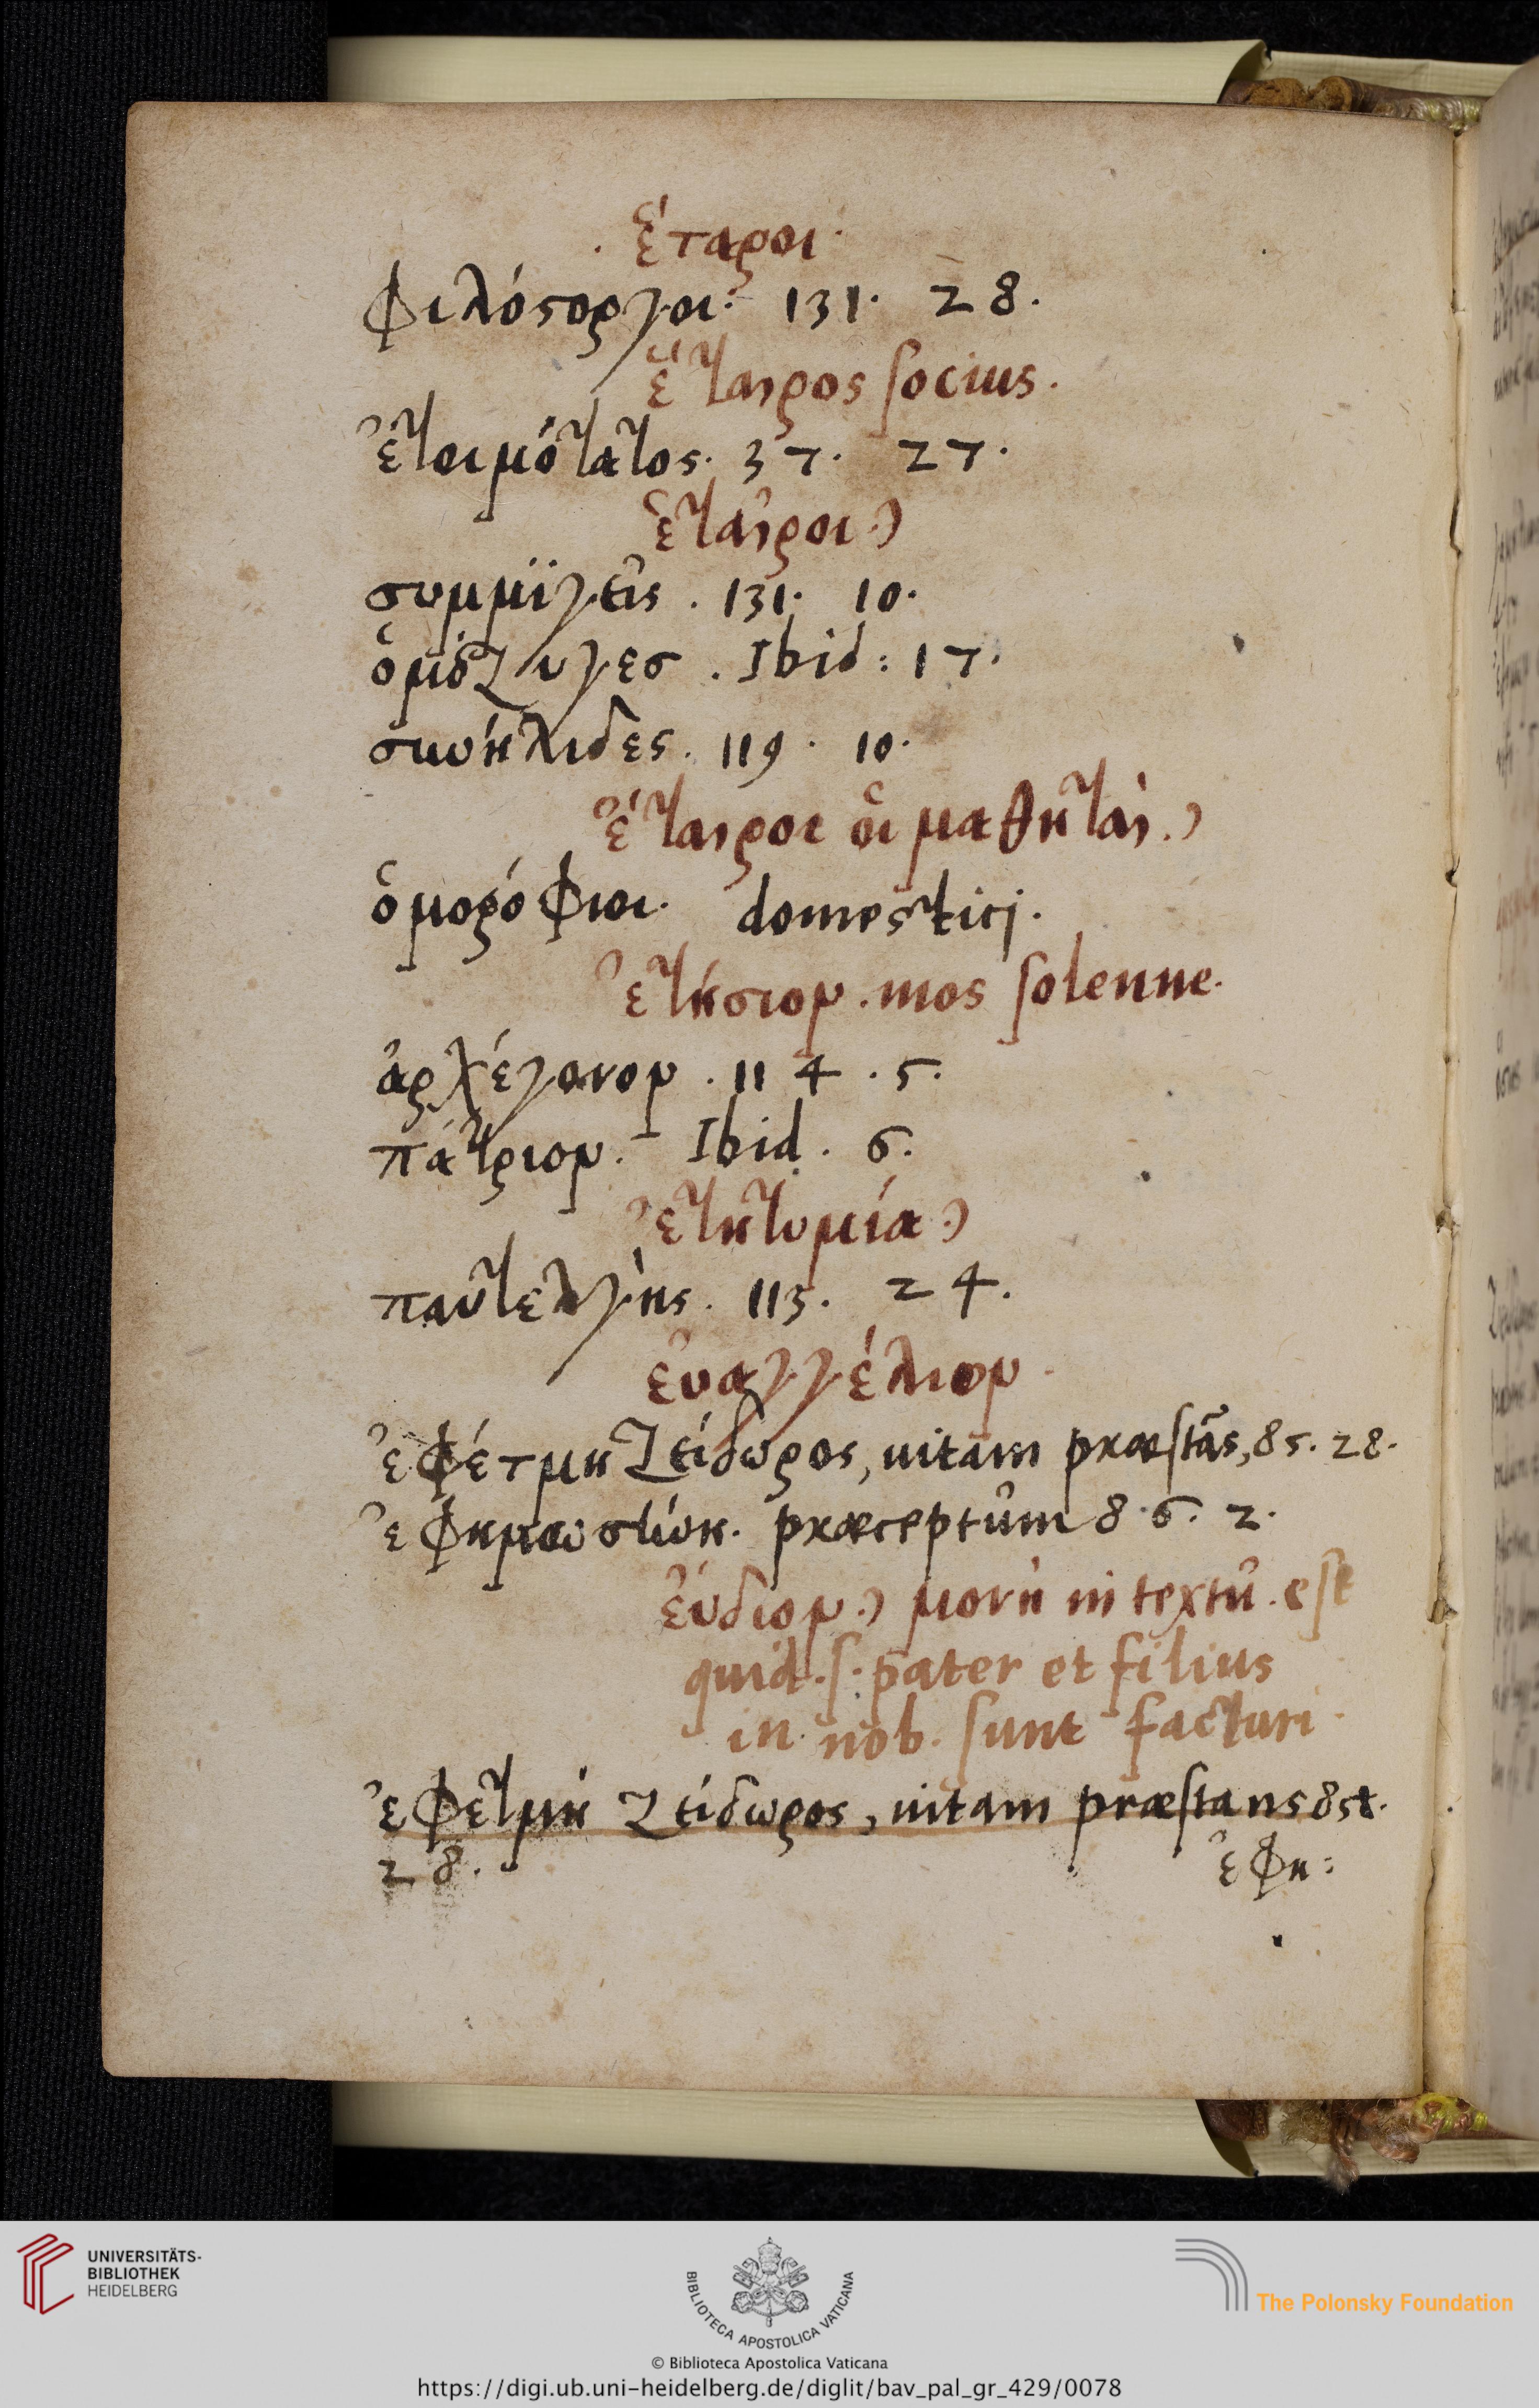 . ἕταροι·
φιλόστοργοι: 131· 28.
ἕταιρος socius.
ἐτοιμότατος. 37. 27.
ἑταῖροι.
συμμϊγεῖς. 131· 10.
ὁμόζυγεσ. Ibid: 17.
σκυήλιδες. 119. 10.
ἔταιροι οἱ μαθηταὶ.
ὁμορόφιοι. domestici.
ἐτήσιον. mos solenne.
ἀρχέγονον. 114. 5.
πάτριον. Ibid. 6.
ἐτητυμία
παντελγὴς. 113. 24.
ἐυαγγέλιον.
ἐφέτμη ζείδωρος, uitam præstãs, 85. 28.
præceptum 8·6. 2.
ἐύδιον. μονὴ in textu. est
quid. s. pater et filius
in nob. sunt facturi
ἐφετμὴ ζείδωρος, uitam præstans 85.
28.
ἐφη:
UNIVERSITÄTS-
BIBLIOTHEK
HEIDELBERG
BIBLIOTECA APOSTOLICA VATICANA
The Polonsky Foundation
© Biblioteca Apostolica Vaticana
https://digi.ub.uni-heidelberg.de/diglit/bav_pal_gr_429/0078